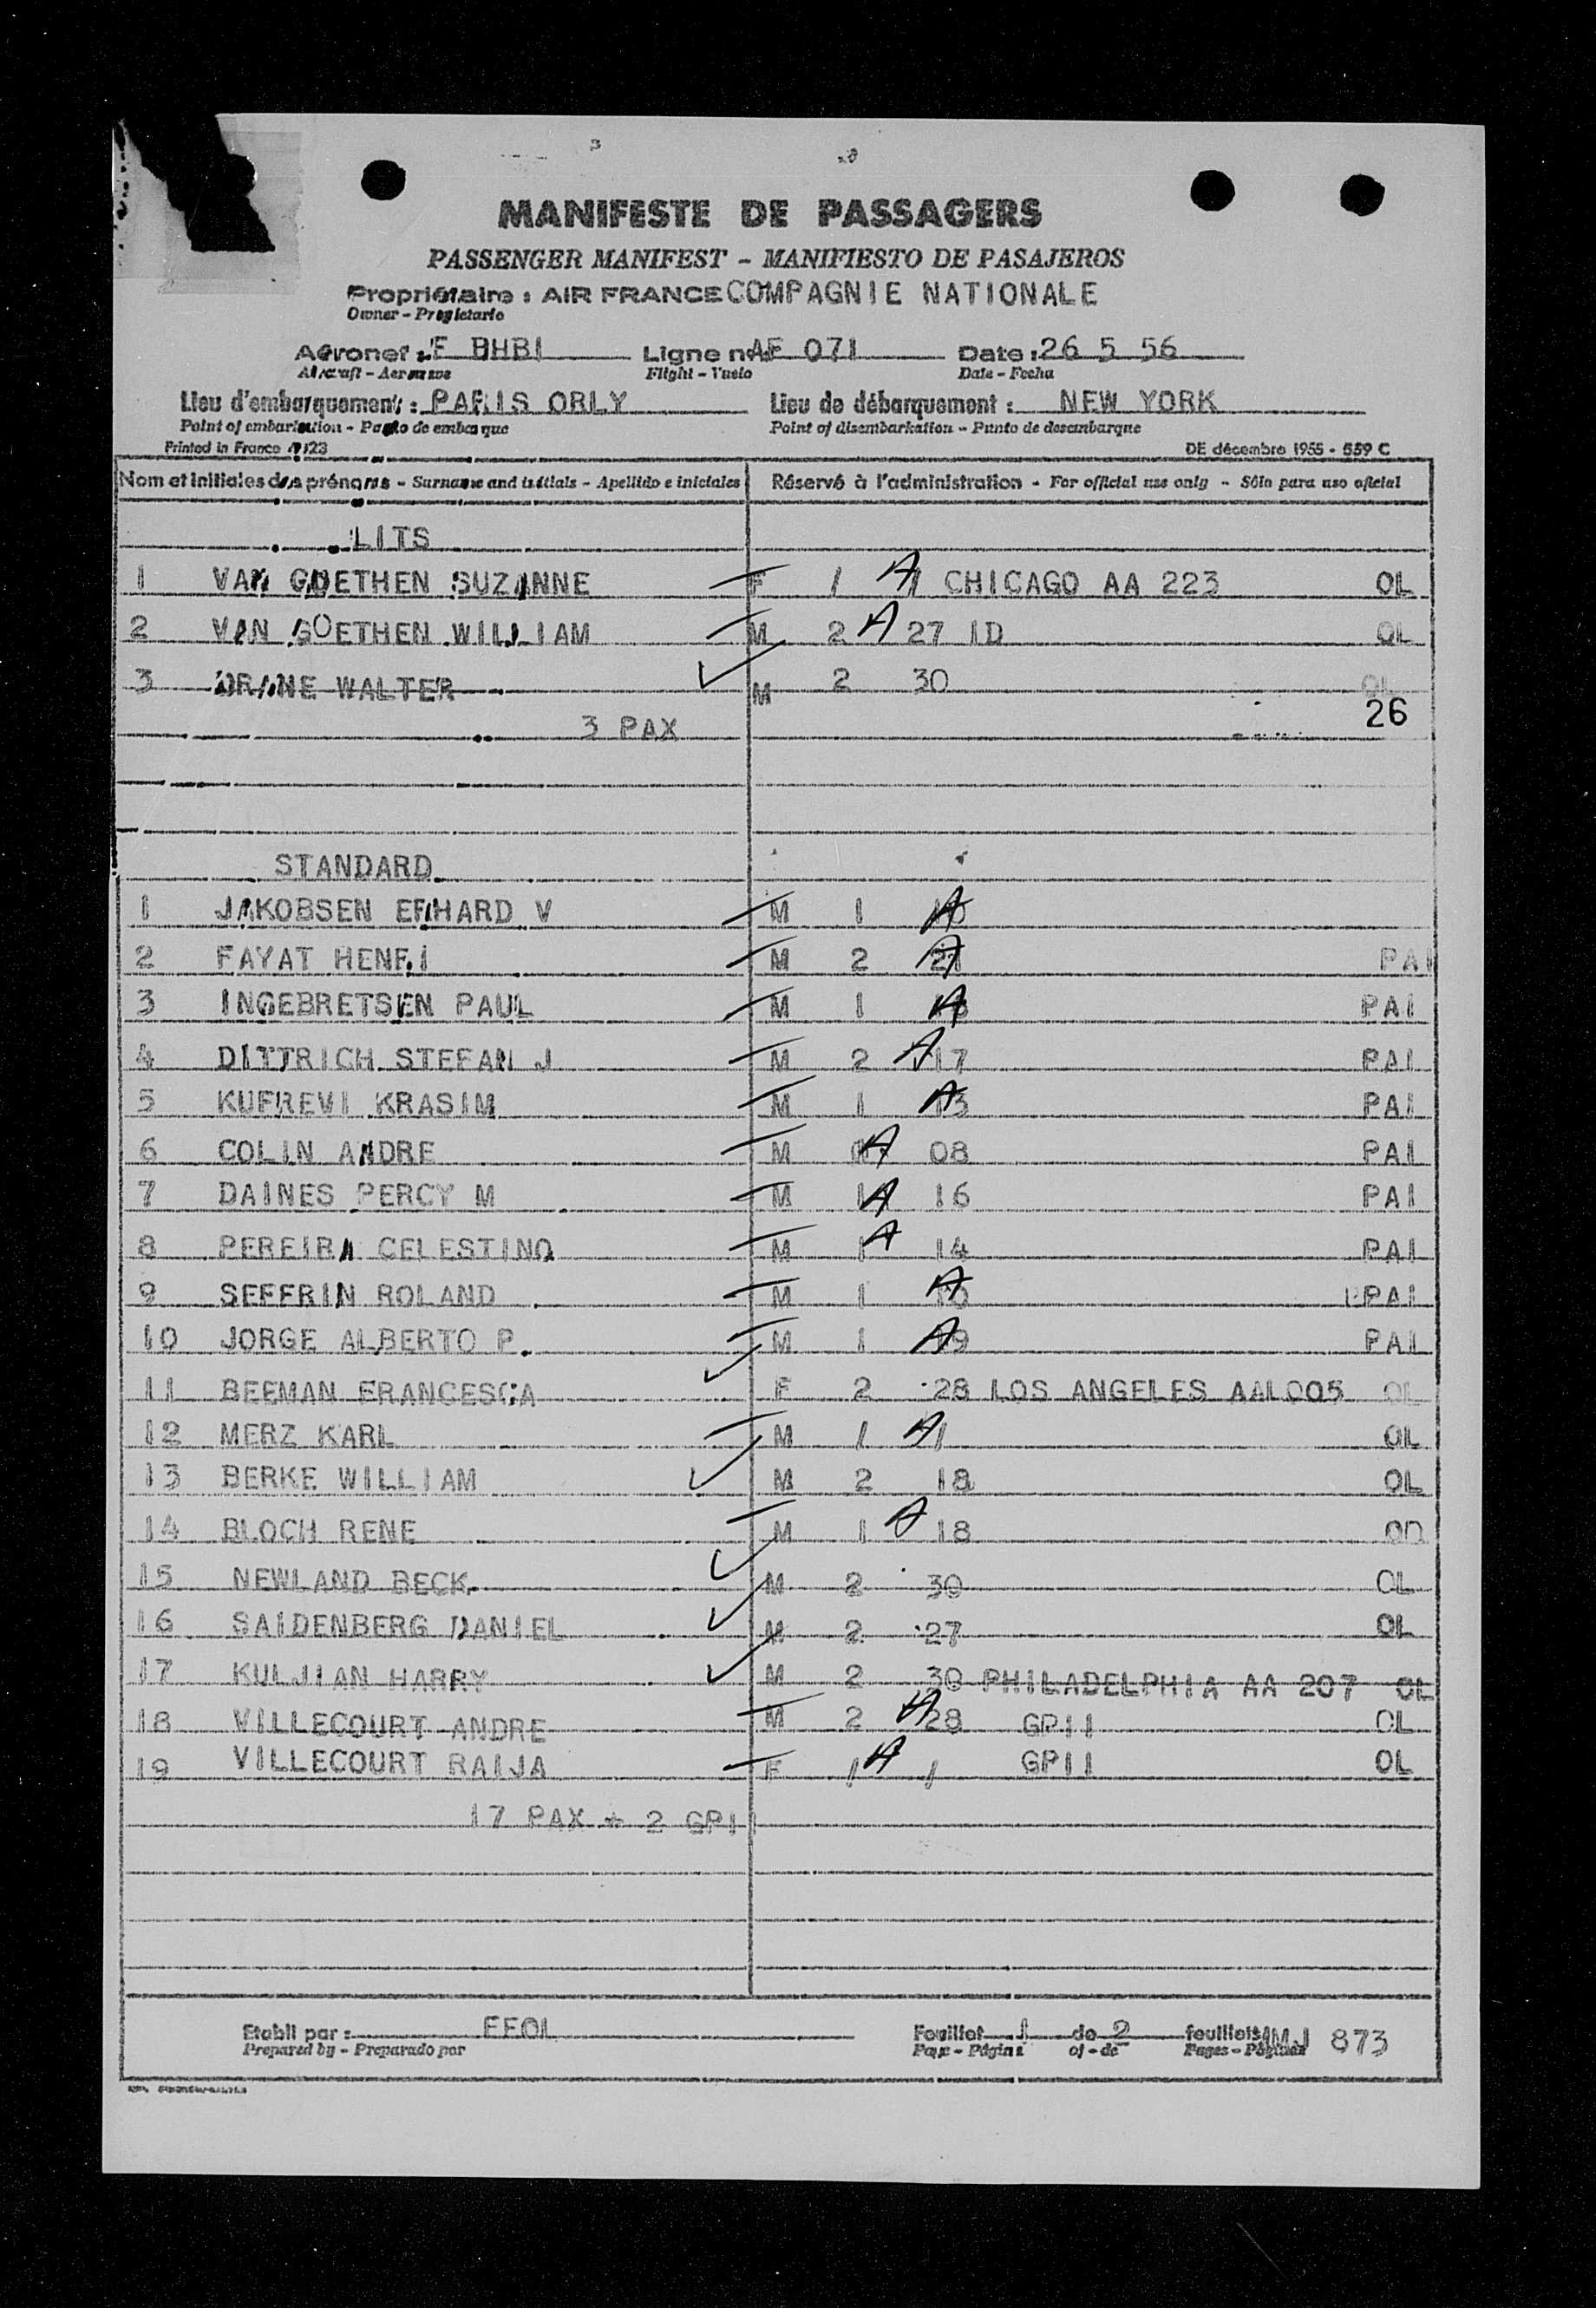 MANIFESTE DE PASSAGERS
PASSENGER MANIFEST - MANIFIESTO DE PASAJEROS
Propriétaire : AIR FRANCE COMPAGNIE NATIONALE
Owner - Propietario
Aéronef : F BHBI Ligne no AF 071 Date : 26 5 56
Aircraft - Aeronave Flight - Vuelo Date - Fecha
Lieu d'embarquement : PARIS ORLY Lieu de débarquement : NEW YORK
Point of embarkation - Punto de embarque Point of disembarkation - Punto de desembarque
Printed in France DE décembre 1955 - 559 C
Nom et initiales des prénoms - Surname and initials - Apellido e iniciales Réservé à l'administration - For official use only - Sólo para uso oficial
LITS
1 VAN GOETHEN SUZANNE F 1 A 1 CHICAGO AA 223 OL
2 VAN GOETHEN WILLIAM M 2 A 27 ID OL
3 WALTER M 2 30 OL
26
3 PAX
STANDARD
1 JAKOBSEN ERHARD V M 1 A
2 FAYAT HENRI M 2 A PAI
3 INGEBRETSEN PAUL M 1 A PAI
4 DITTRICH STEFAN J M 2 A 17 PAI
5 KUFREVI KRASIM M 1 A PAI
6 COLIN ANDRE M A 08 PAI
7 DAINES PERCY M M 1 A 16 PAI
8 PEREIRA CELESTINO M 1 A 14 PAI
9 SEFFRIN ROLAND M 1 A PAI
10 JORGE ALBERTO P. M 1 A PAI
11 BEEMAN FRANCESCA F 2 28 LOS ANGELES AAL005 OL
12 MERZ KARL M 1 A 1 OL
13 BERKE WILLIAM M 2 18 OL
14 BLOCH RENE M 1 A 18
15 NEWLAND BECK M 2 30 OL
16 SAIDENBERG DANIEL M 2 27 OL
17 KULJIAN HARRY M 2 30 PHILADELPHIA AA 207 OL
18 VILLECOURT ANDRE M 2 A 28 GP11 OL
19 VILLECOURT RAIJA F 1 A 1 GP11 OL
17 PAX + 2 GP11
Etabli par : Feuillet 1 de 2 feuillets MMJ 873
Prepared by - Preparado por Page - Página of - de Pages - Páginas